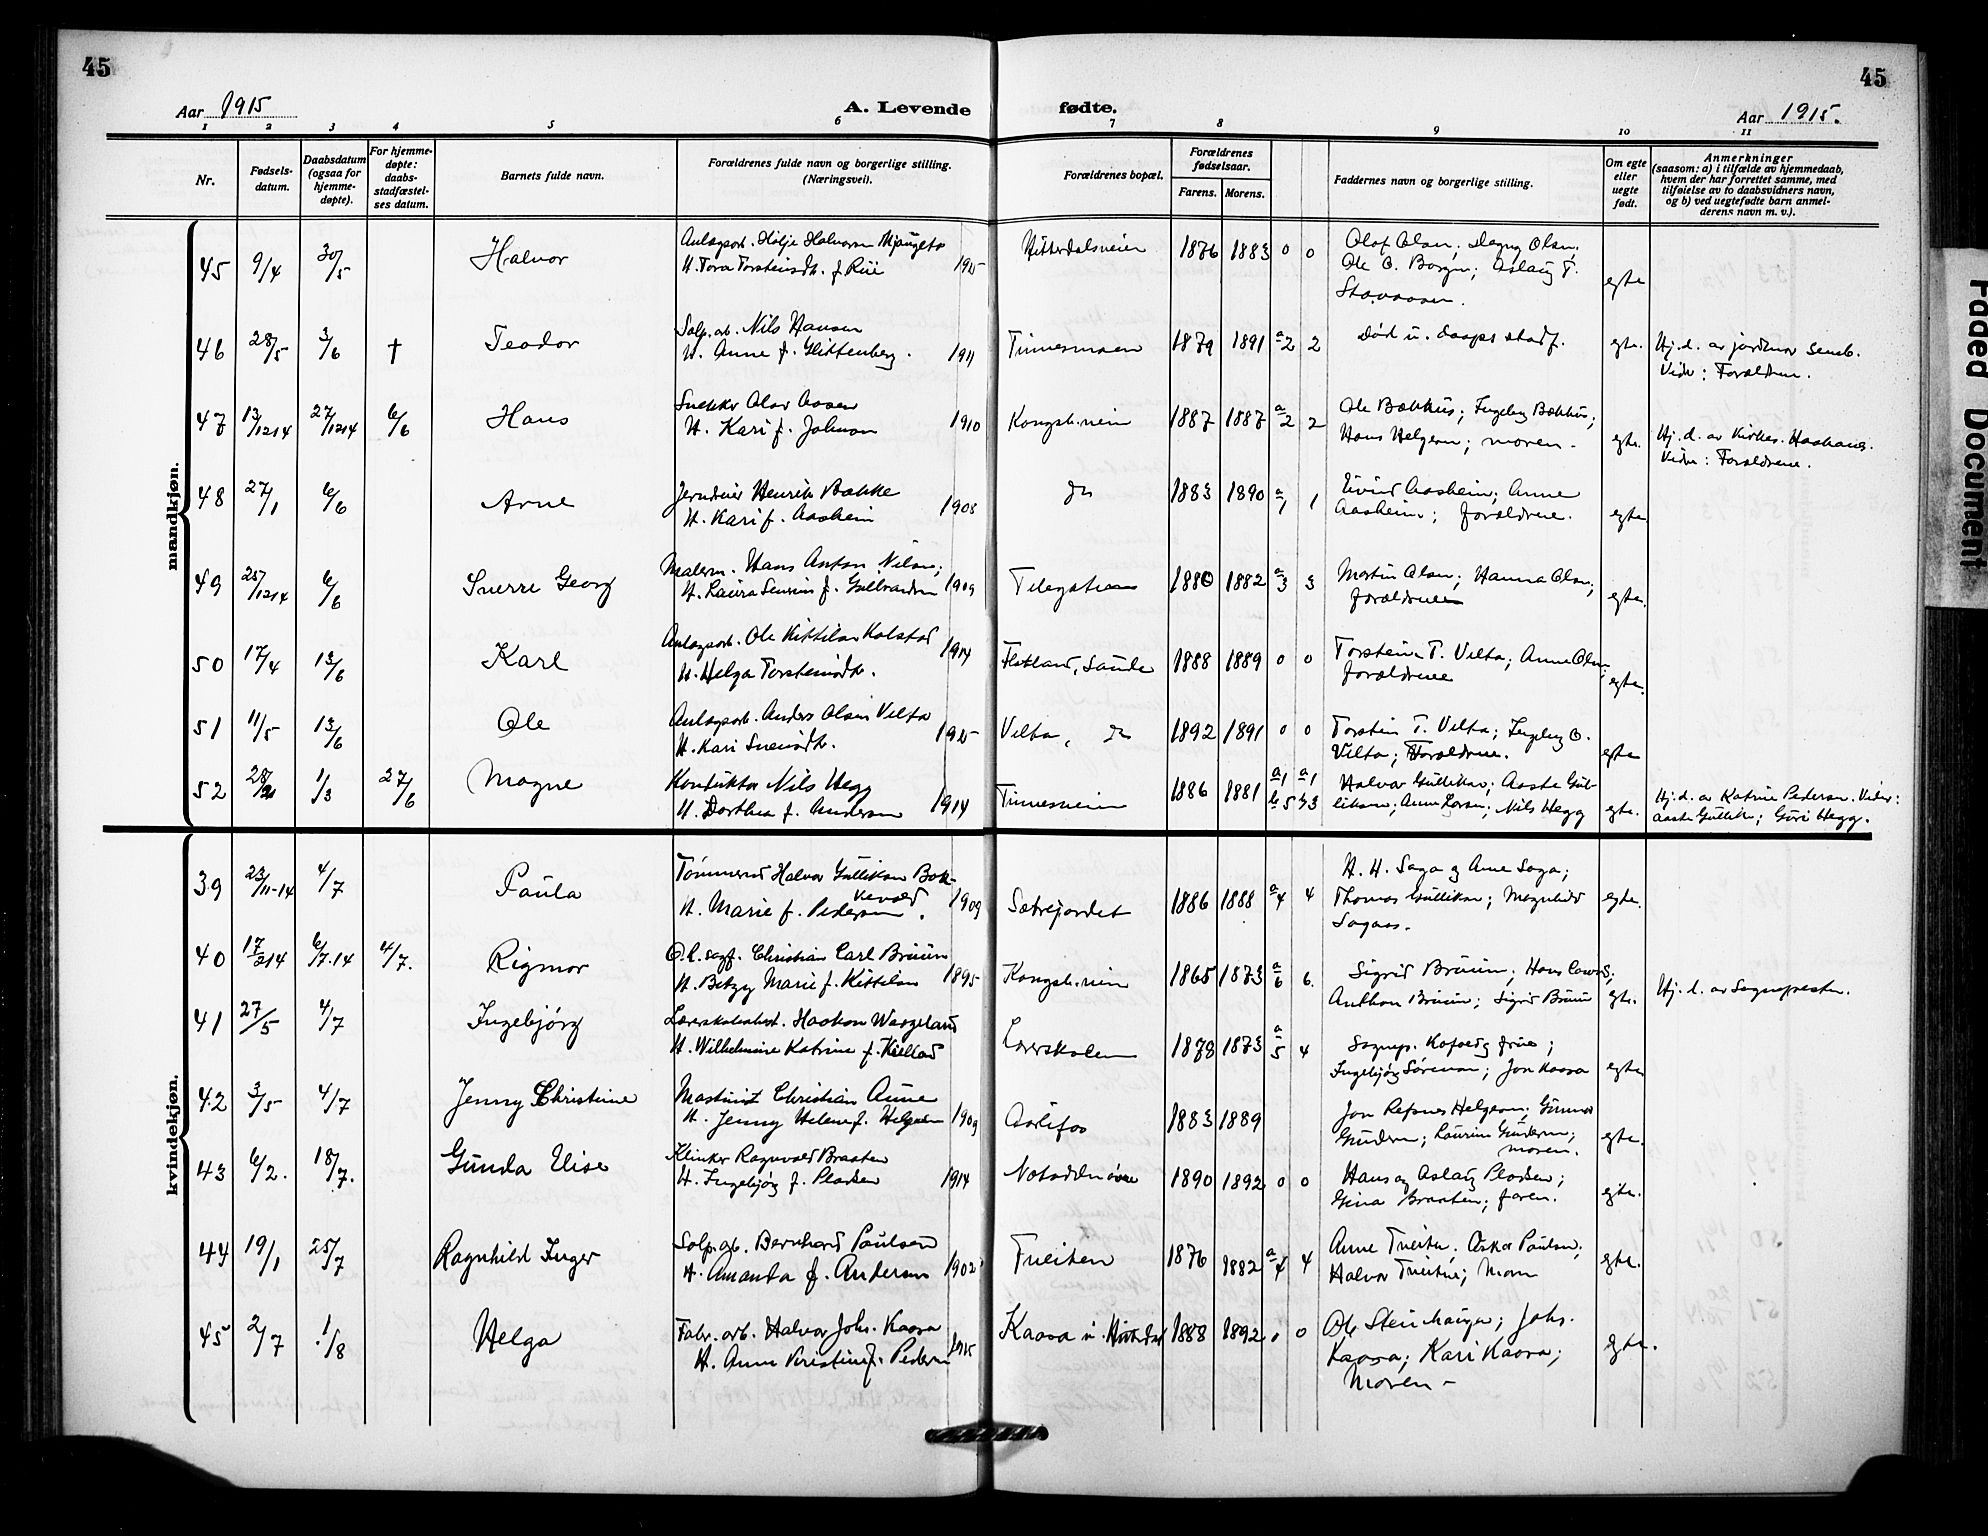 45
45
Aar 1915
A. Levende fødte.
Aar 1915.
1 2 3 4 5 6 7 8 9 10 11
Nr.
Fødsels-
datum.
Daabsdatum
(ogsaa for
hjemme-
døpte).
For hjemme-
døpte:
daabs-
stadfæstel-
ses datum.
Barnets fulde navn.
Forældrenes fulde navn og borgerlige stilling.
(Næringsvei).
Forældrenes bopæl.
Forældrenes
fødselsaar.
Farens. Morens.
Faddernes navn og borgerlige stilling.
Om egte
eller
uegte
født.
Anmerkninger
(saasom: a) i tilfælde av hjemmedaab,
hvem der har forrettet samme, med
tilføielse av to daabsvidners navn,
og b) ved uegtefødte barn anmel-
derens navn m. v.).
mandkjøn.
45 9/4 30/5 Halvor
H. Tora Torsteinsdt. f. Rui 1915
Hitterdalsveien 1876 1883 0 0
Olaf Olsen; Dagny Olsen;
Ole O. Borgen; Aslaug T.
egte
46 28/5 3/6 † Teodor
Solp. arb. Nils Hansen
H. Anne f. Glittenberg. 1911
Tinnesmoen 1879 1891 a2 2
Død u. daaps stadf.
egte. Hj. d. av jordmor Semb.
Vidn: Forældrene.
47 13/12 14 27/12 14 6/6 Hans
Snekker Olav Aasen
H. Kari f. Johnson 1910
Kongsb.veien 1887 1887 a2 2
Ole Bækhus; Ingeborg Bækhus;
Hans Helgesen; moren.
egte. Hj. d. av Kirkes. Haakanes.
Vidn: Forældrene.
48 27/1 6/6 Arne
Henrik Bække
H. Kari f. Aasheim 1908
do 1883 1890 a1 1
Eivind Aasheim; Anne
Aasheim; forældrene.
egte
49 25/12 14 6/6 Sverre Georg
Malerm. Hans Anton Nilsen;
H. Laura Severine f. Gulbrandsen 1909
1880 1882 a3 3
Martin Olsen; Hanna Olsen;
forældrene
egte.
50 17/4 13/6 Karl
Anlægsarb. Ole Kittilsen Kolstad
H. Helga Torsteinsdt. 1914
Flatland, Saude 1888 1889 0 0
Torstein T. Velta; Anne Olsen;
forældrene
egte.
51 11/5 13/6 Ole
Anlægsarb. Anders Olsen Velta
H. Kari Sveinsdt. 1915
Velta, do 1892 1891 0 0
Torstein T. Velta; Ingeborg O.
Velta; Forældrene.
egte
52 28/2 1/3 27/6 Magne
Konduktør Nils Hegg
H. Dorthea f. Andersen 1914
Tinnesveien 1886 1881 a1 a1
b5 b3
Halvor Gulliksen; Aaste Gul-
liksen; Anne Larsen; Nils Hegg
egte. Hj. d. av Katrine Pedersen. Vidn:
Aaste Gulliks.; Guri Hegg.
kvindekjøn.
39 23/11-14 4/7 Paula
Tømmerm. Halvor Gulliksen Bak-
kevold
H. Marie f. Pedersen. 1909
Sætrejordet 1886 1888 a4 4
H. H. Saga og Anne Saga;
Thomas Gulliksen; Magnhild
Sagaas.
egte.
40 17/2 14 6/7.14 4/7. Rigmor
O.r. sagf. Christian Carl Bruun
H. Betzy Marie f. Kittilsen 1895
Kongsb.veien 1865 1873 a6 6.
Sigrid Bruun; Hans
Anthon Bruun; Sigrid Bruun
egte. Hj. d. av Sognepresten.
41 27/5 4/7 Ingebjørg
Haakon Wergeland
H. Wilhelmine Katrine f. Kielland
Lærerskolen 1878 1873 a5 4
Sognep. Kofoed og frue;
Ingebjørg Sørensen; Jon Kaasa
egte
42 3/5 4/7 Jenny Christine
Maskinist Christian Aune
H. Jenny Helene f. Helgesen 1909
Aarlifos 1883 1889
Jon Refsnes Helgesen; Gunnar
Gundersen; Laurine Gundersen;
moren.
egte.
43 6/2. 18/7. Gunda Elise
Klinker Ragnvald Braaten
H. Ingebjørg f. Pladsen 1914
1890 1892 0 0
Hans og Aslaug Pladsen;
Gina Braaten; faren.
egte.
44 19/1 25/7 Ragnhild Inger
Solp. arb. Bernhard Paulsen
H. Amanda f. Andersen 1902
Tveiten 1876 1882 a4 4
Anne Tveiten; Oskar Paulsen;
Halvor Tveiten; Moren
egte.
45 2/7 1/8 Helga
Fabr. arb. Halvor Johs. Kaasa
H. Anne Kristine f. Pedersen 1915
Kaasa i Hitterdal 1888 1892 0 0
Ole Steinhaugen; Johs.
Kaasa; Kari Kaasa;
Moren -
egte.
Faded Document